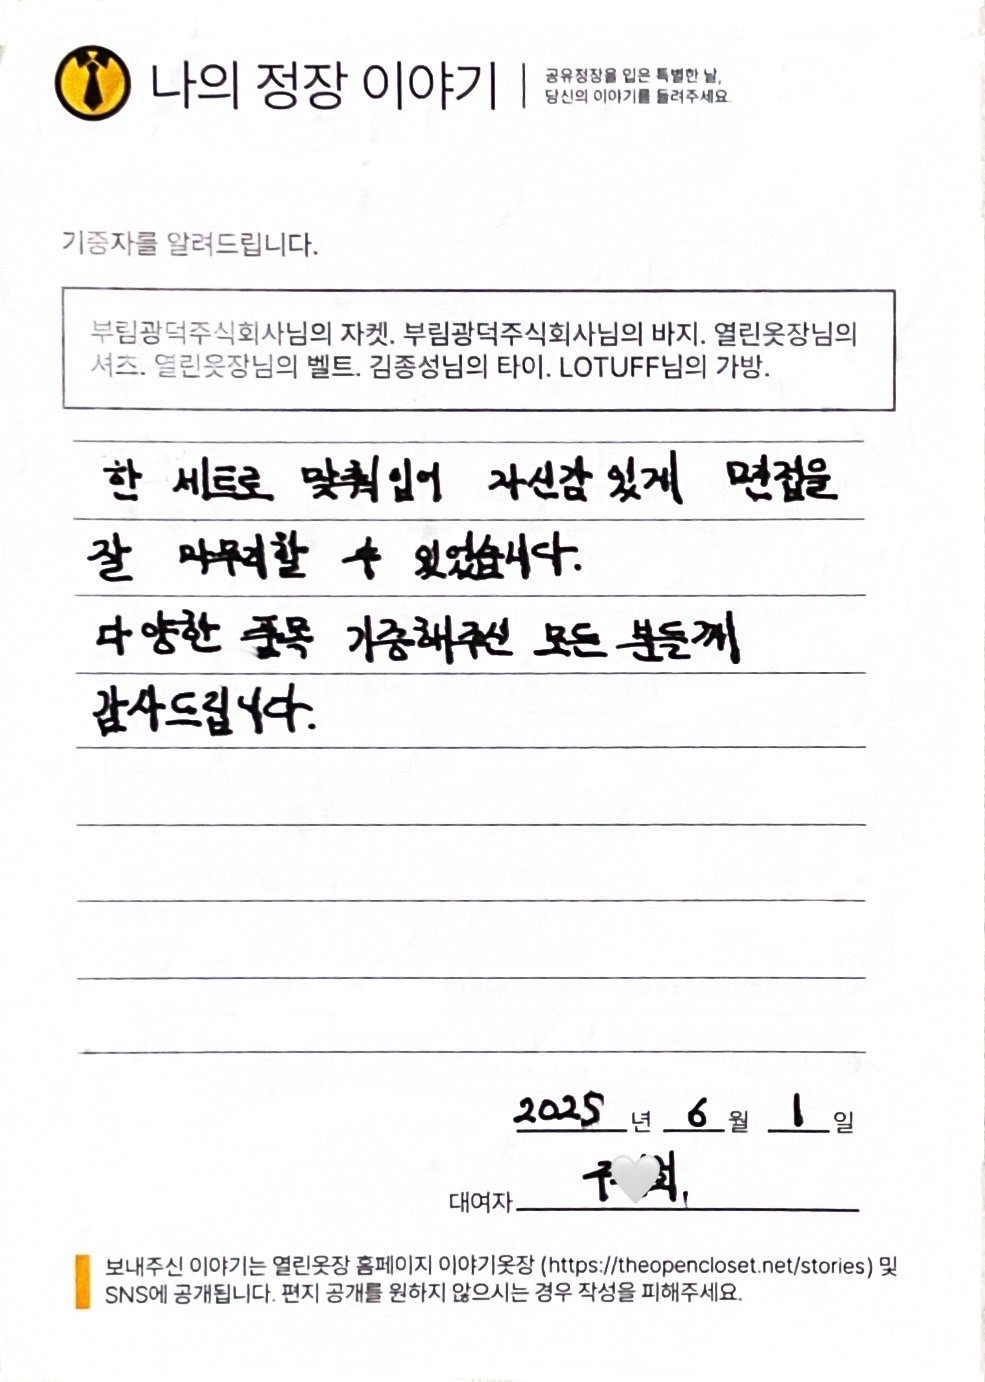 나의 정장 이야기
공유정장을 입은 특별한 날,
당신의 이야기를 들려주세요.
기증자를 알려드립니다.
부림광덕주식회사님의 자켓. 부림광덕주식회사님의 바지. 열린옷장님의
셔츠. 열린옷장님의 벨트. 김종성님의 타이. LOTUFF님의 가방.
한 세트로 맞춰입어 자신감 있게 면접을
잘 마무리할 수 있었습니다.
다양한 품목 기증해주신 모든 분들께
감사드립니다.
2025 년 6 월 1 일
대여자
보내주신 이야기는 열린옷장 홈페이지 이야기옷장 (https://theopencloset.net/stories) 및
SNS에 공개됩니다. 편지 공개를 원하지 않으시는 경우 작성을 피해주세요.